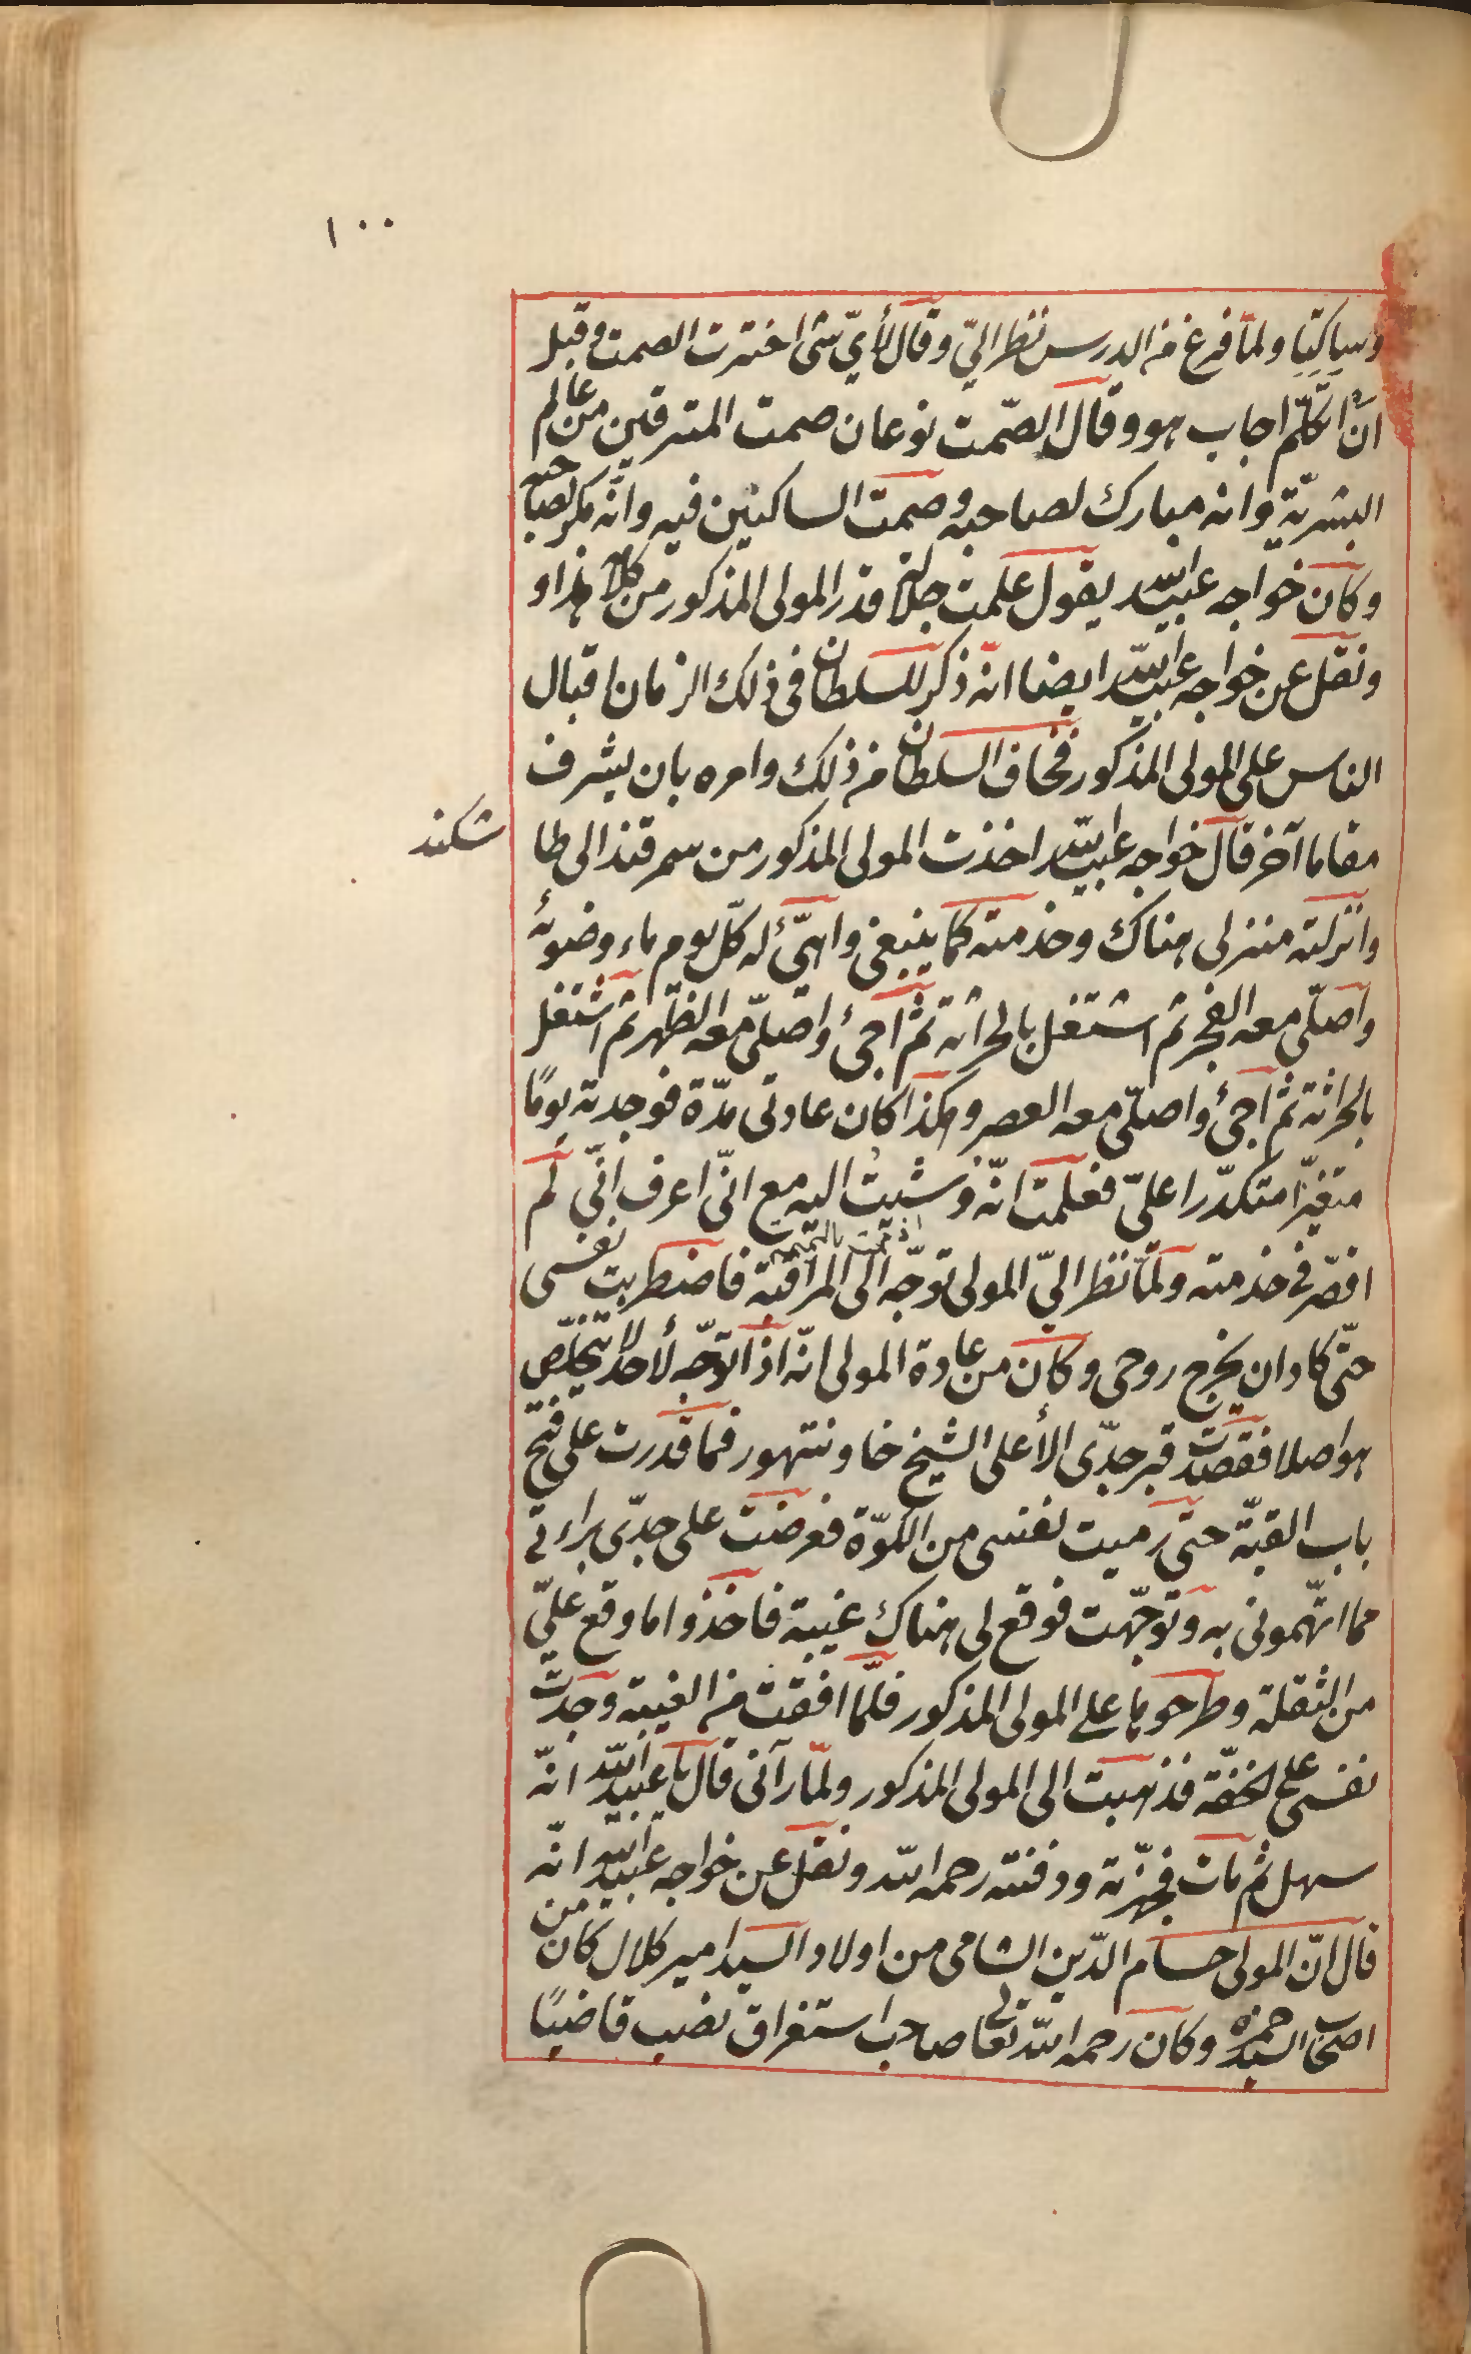 ١٠٠
وساكتا ولما فرغ من الدرس نظر الىّ وقال لأىّ شئ اخترت الصمت وقبل
ان اتكلّم اجاب هو وقال الصّمت نوعان صمت المترقين من عالم
البشريّة وانه مبارك لصاحبه وصمت الساكنين فيه وانّه مكر لصاحبه
وكان خواجه عبيد الله يقول علمت جلالة قدر المولى المذكور من كلامه هذا و
ونقل عن خواجه عبيد الله ايضا انه ذكر للسلطان فى ذلك الزمان اقبال
الناس على المولى المذكور فخاف السلطان من ذلك وامره بان يشرف
مقاما آخر قال خواجه عبيد الله اخذت المولى المذكور من سمرقند الى طا
شكند
وانزلته منزلى هناك وخدمته كما ينبغى واهيّئ له كلّ يوم ماء وضوئه
واصلّى معه الفجر ثم اشتغل بالحراثة ثم اجئ واصلّى معه الظهر ثم اشتغل
بالحراثة ثم اجئ واصلّى معه العصر وهكذا كان عادتى مدّة فوجدته يومًا
متغيّرا متكدّرا علىّ فعلمت انّه وشيت اليه مع انّى اعرف انّى لم
اقصّر فى خدمته ولمّا نظر الىّ المولى توجّه الى المراقبة فاضطربت نفسى
حتّى كاد ان يخرج روحى وكان من عادة المولى انّه اذا توجّه لأحد لا يتخلّص
هو اصلا فقصدت قبر جدّى الأعلى الشيخ خاوند تهور فما قدرت على فتح
باب القبّة حتى رميت نفسى من الكوّة فعرضت على جدّى براءتى
مما اتّهمونى به وتوجّهت فوقع لى هناك غيبة فاخذوا ما وقع علىّ
من الثقلة وطرحوها على المولى المذكور فلمّا افقت من الغيبة وجدت
نفسى على الخفّة فذهبت الى المولى المذكور ولمّا رآنى قال يا عبيد الله انّه
سهل ثم مات فجهّزته ودفنته رحمه الله ونقل عن خواجه عبيد الله انّه
قال انّ المولى حسام الدّين الشامى من اولاد السيد امير كلال كان من
اصحاب السيد حمزه وكان رحمه الله تعالى صاحب استغراق نصب قاضيًا